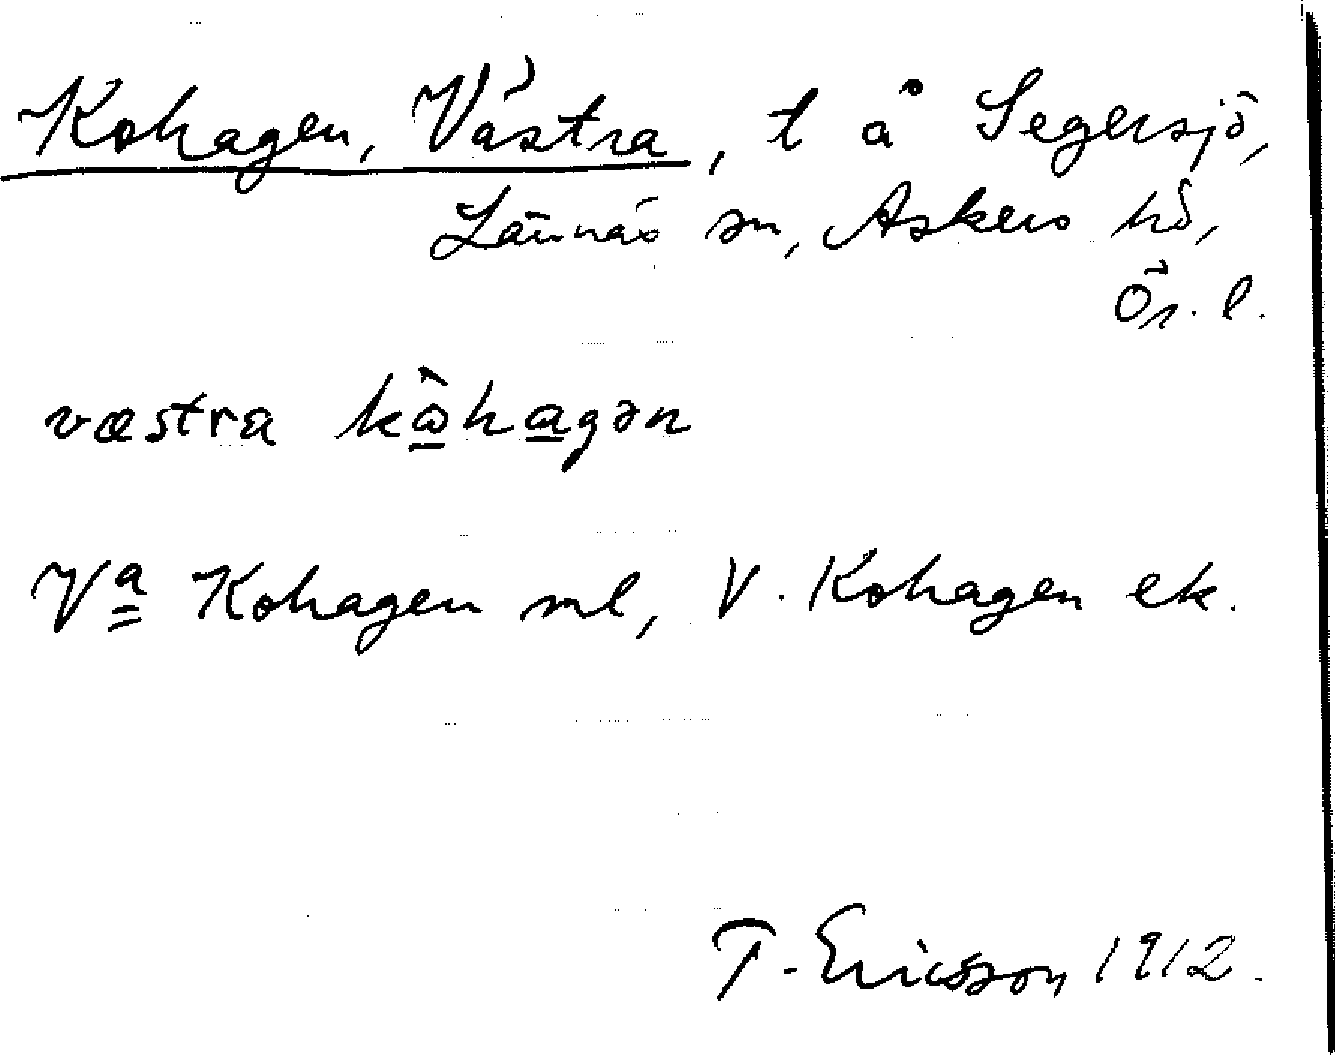 Kohagen, Västra, t å Segersjö,
Lännäs sn, Askers hd,
Ör. l.
væstra kωhagən
Va Kohagen ml, V. Kohagen ek.
T. Ericsson 1912.